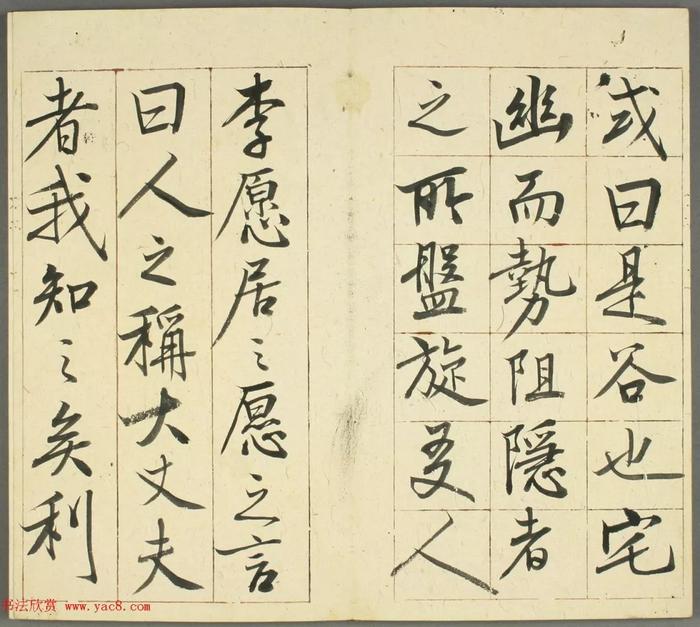 或曰是谷也宅
幽而勢阻隱者
之所盤旋友人
李愿居之愿之言
曰人之稱大丈夫
者我知之矣利
书法欣赏 www.yac8.com